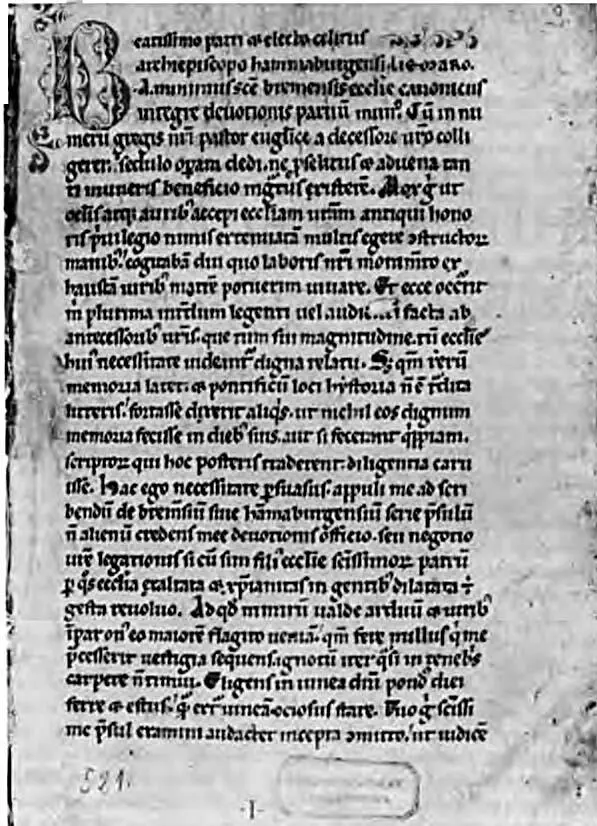 Beatissimo patri et electo celitus
archiepiscopo hammaburgensi. li
A. minimus scē bremensis ecclie canonicus
integre deuotionis paruū mun⁹. Cū in nu
merū gregis nr̄i pastor euglice a decessore ur̄o colli
gerer. sedulo oꝑam dedi. ne ꝓselitus et aduena tan
ti muneris beneficio ingratus existerem. Mox gͥ ut
oculis atqꝫ aurib⁹ accepi eccliam uram antiqui hono
ris pͥuilegio nimis extenuatā multis egere ꝯstructorꝝ
manib⁹. cogitabā diu quo laboris nr̄i monim̄to ex
haustā uirib⁹ matrē potuerim iuuare. Et ecce
m̄ plurima int̄dum legenti uel facta ab
antecessorib⁹ ur̄is. que tum sui magnitudine. tū ecclie
hui⁹ necessitate uident̄ digna relatu. Sꝫ qm̄ rerū
memoria latet. et pontificū loci hystoria n̄ ē t̄dita
litteris. fortasse dixerit aliqͥs. ut nichil eos dignum
memoria fecisse in dieb⁹ suis. aut si fecerunt qͥppiam.
scriptorꝝ qui hoc posteris traderent. diligentia caru
isse. Hac ego necessitate ꝑsuasus. appuli me ad scri
bendū de brem̄siū siue hāmaburgensiū serie p̄sulū
n̄ alienū credens mee deuotionis officio. seu negotio
ur̄e legationis si cū sim fili⁹ ecclie scīssimorꝝ patrū
ꝑ qͦs ecclia exaltata et xp̄ianitas in gentib⁹ dilatata ē
gesta reuoluo. Ad qd̄ nimirū ualde arduū et uirib⁹
īpar on̄i eo maiorē flagito ueniā. qm̄ fere nullus qͥ me
p̄cesserit uestigia sequens. ignotū iter qͣsi in teneb̄s
carpere n̄ timui. Eligens in uinea dn̄i pond⁹ diei
ferre et estus. qͣm extͣ uineā ociosus stare. Tuo gͥ scīssi
me p̄sul examini audacter incepta ꝯmitto. ut iudicē
521.
-1-